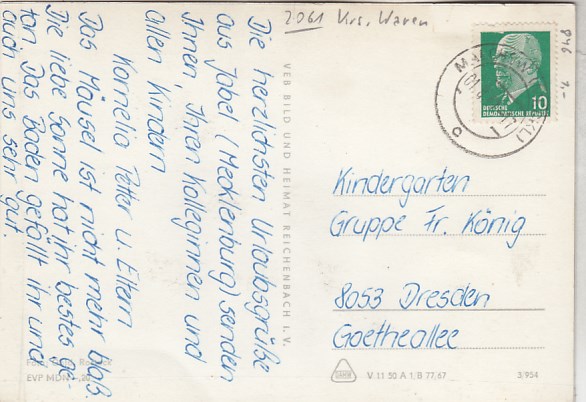 2061 Krs. Waren
Die herzlichsten Urlaubsgrüße
aus Jabel (Mecklenburg) senden
Ihnen, Ihren Kolleginnen und
allen Kindern
Kornelia Petter u. Eltern
Das Mäusel ist nicht mehr blaß.
Die liebe Sonne hat ihr bestes ge-
tan. Das Baden gefällt ihr und
auch uns sehr gut.
EVP MDN
VEB BILD UND HEIMAT REICHENBACH I. V.
846 1.-
DEUTSCHE
DEMOKRATISCHE REPUBLIK
10
Kindergarten
Gruppe Fr. König
8053 Dresden
Goetheallee
V 11 50 A 1, B 77,67
3/954